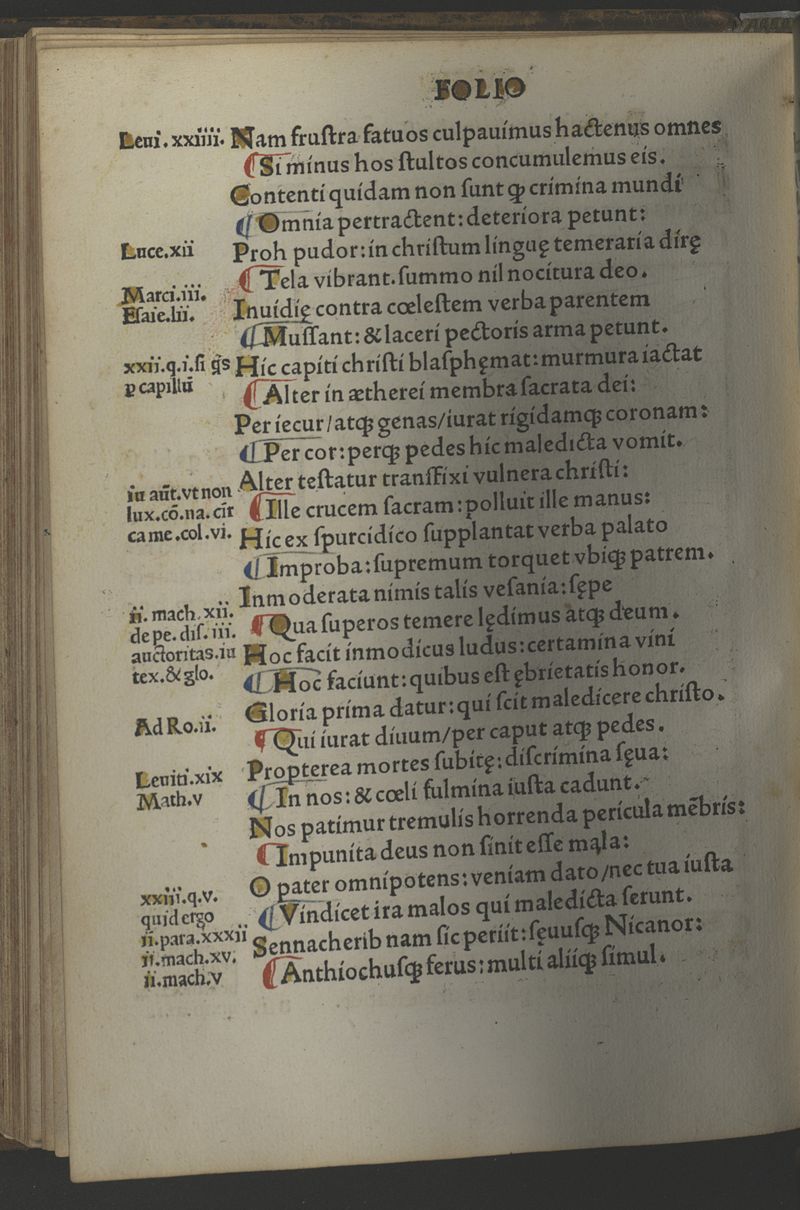 FOLIO
Leui. xxiiii. Nam fruſtra fatuos culpauimus hactenus omnes
¶Si minus hos ſtultos concumulemus eis.
Contenti quidam non ſunt ꝙ crimina mundi
¶Omnia pertractent: deteriora petunt:
Luce.xii Proh pudor: in chriſtum linguę temeraria dirę
¶Tela vibrant. ſummo nil nocitura deo.
Marci.iii.
Eſaie.lii. Inuidię contra cœleſtem verba parentem
¶Muſſant: & laceri pectoris arma petunt.
xxii.q.i.ſi q̃s Hic capiti chriſti blaſphęmat: murmura iactat
ꝑ capillũ ¶Alter in ætherei membra ſacrata dei:
Per iecur/atqꝫ genas/iurat rigidamqꝫ coronam:
¶Per cor: perqꝫ pedes hic maledicta vomit.
Alter teſtatur tranſfixi vulnera chriſti:
iu aũt.vt non
lux.cõ.na. cĩt ¶Ille crucem ſacram: polluit ille manus:
ca me.col.vi. Hic ex ſpurcidico ſupplantat verba palato
¶Improba: ſupremum torquet vbiqꝫ patrem.
Inmoderata nimis talis veſania: ſępe
ii. mach.xii.
de pe. diſ. iii. ¶Qua ſuperos temere lędimus atqꝫ deum.
auctoritas.iu Hoc facit inmodicus ludus: certamina vini
tex.&glo. ¶Hoc faciunt: quibus eſt ębrietatis honor.
Gloria prima datur: qui ſcit maledicere chriſto.
Ad Ro.ii. ¶Qui iurat diuum/per caput atqꝫ pedes.
Leuiti.xix Propterea mortes ſubitę: diſcrimina ſęua:
Math.v ¶In nos: & cœli fulmina iuſta cadunt.
Nos patimur tremulis horrenda pericula mẽbris:
¶Impunita deus non ſinit eſſe mala:
xxiii.q.v. O pater omnipotens: veniam dato/nec tua iuſta
quid ergo ¶Vindicet ira malos qui maledicta ferunt.
ii.para.xxxii Sennacherib nam ſic periit: ſęuuſqꝫ Nicanor:
ii.mach.xv. ¶Anthiochuſqꝫ ferus: multi aliiqꝫ ſimul.
ii.mach.v